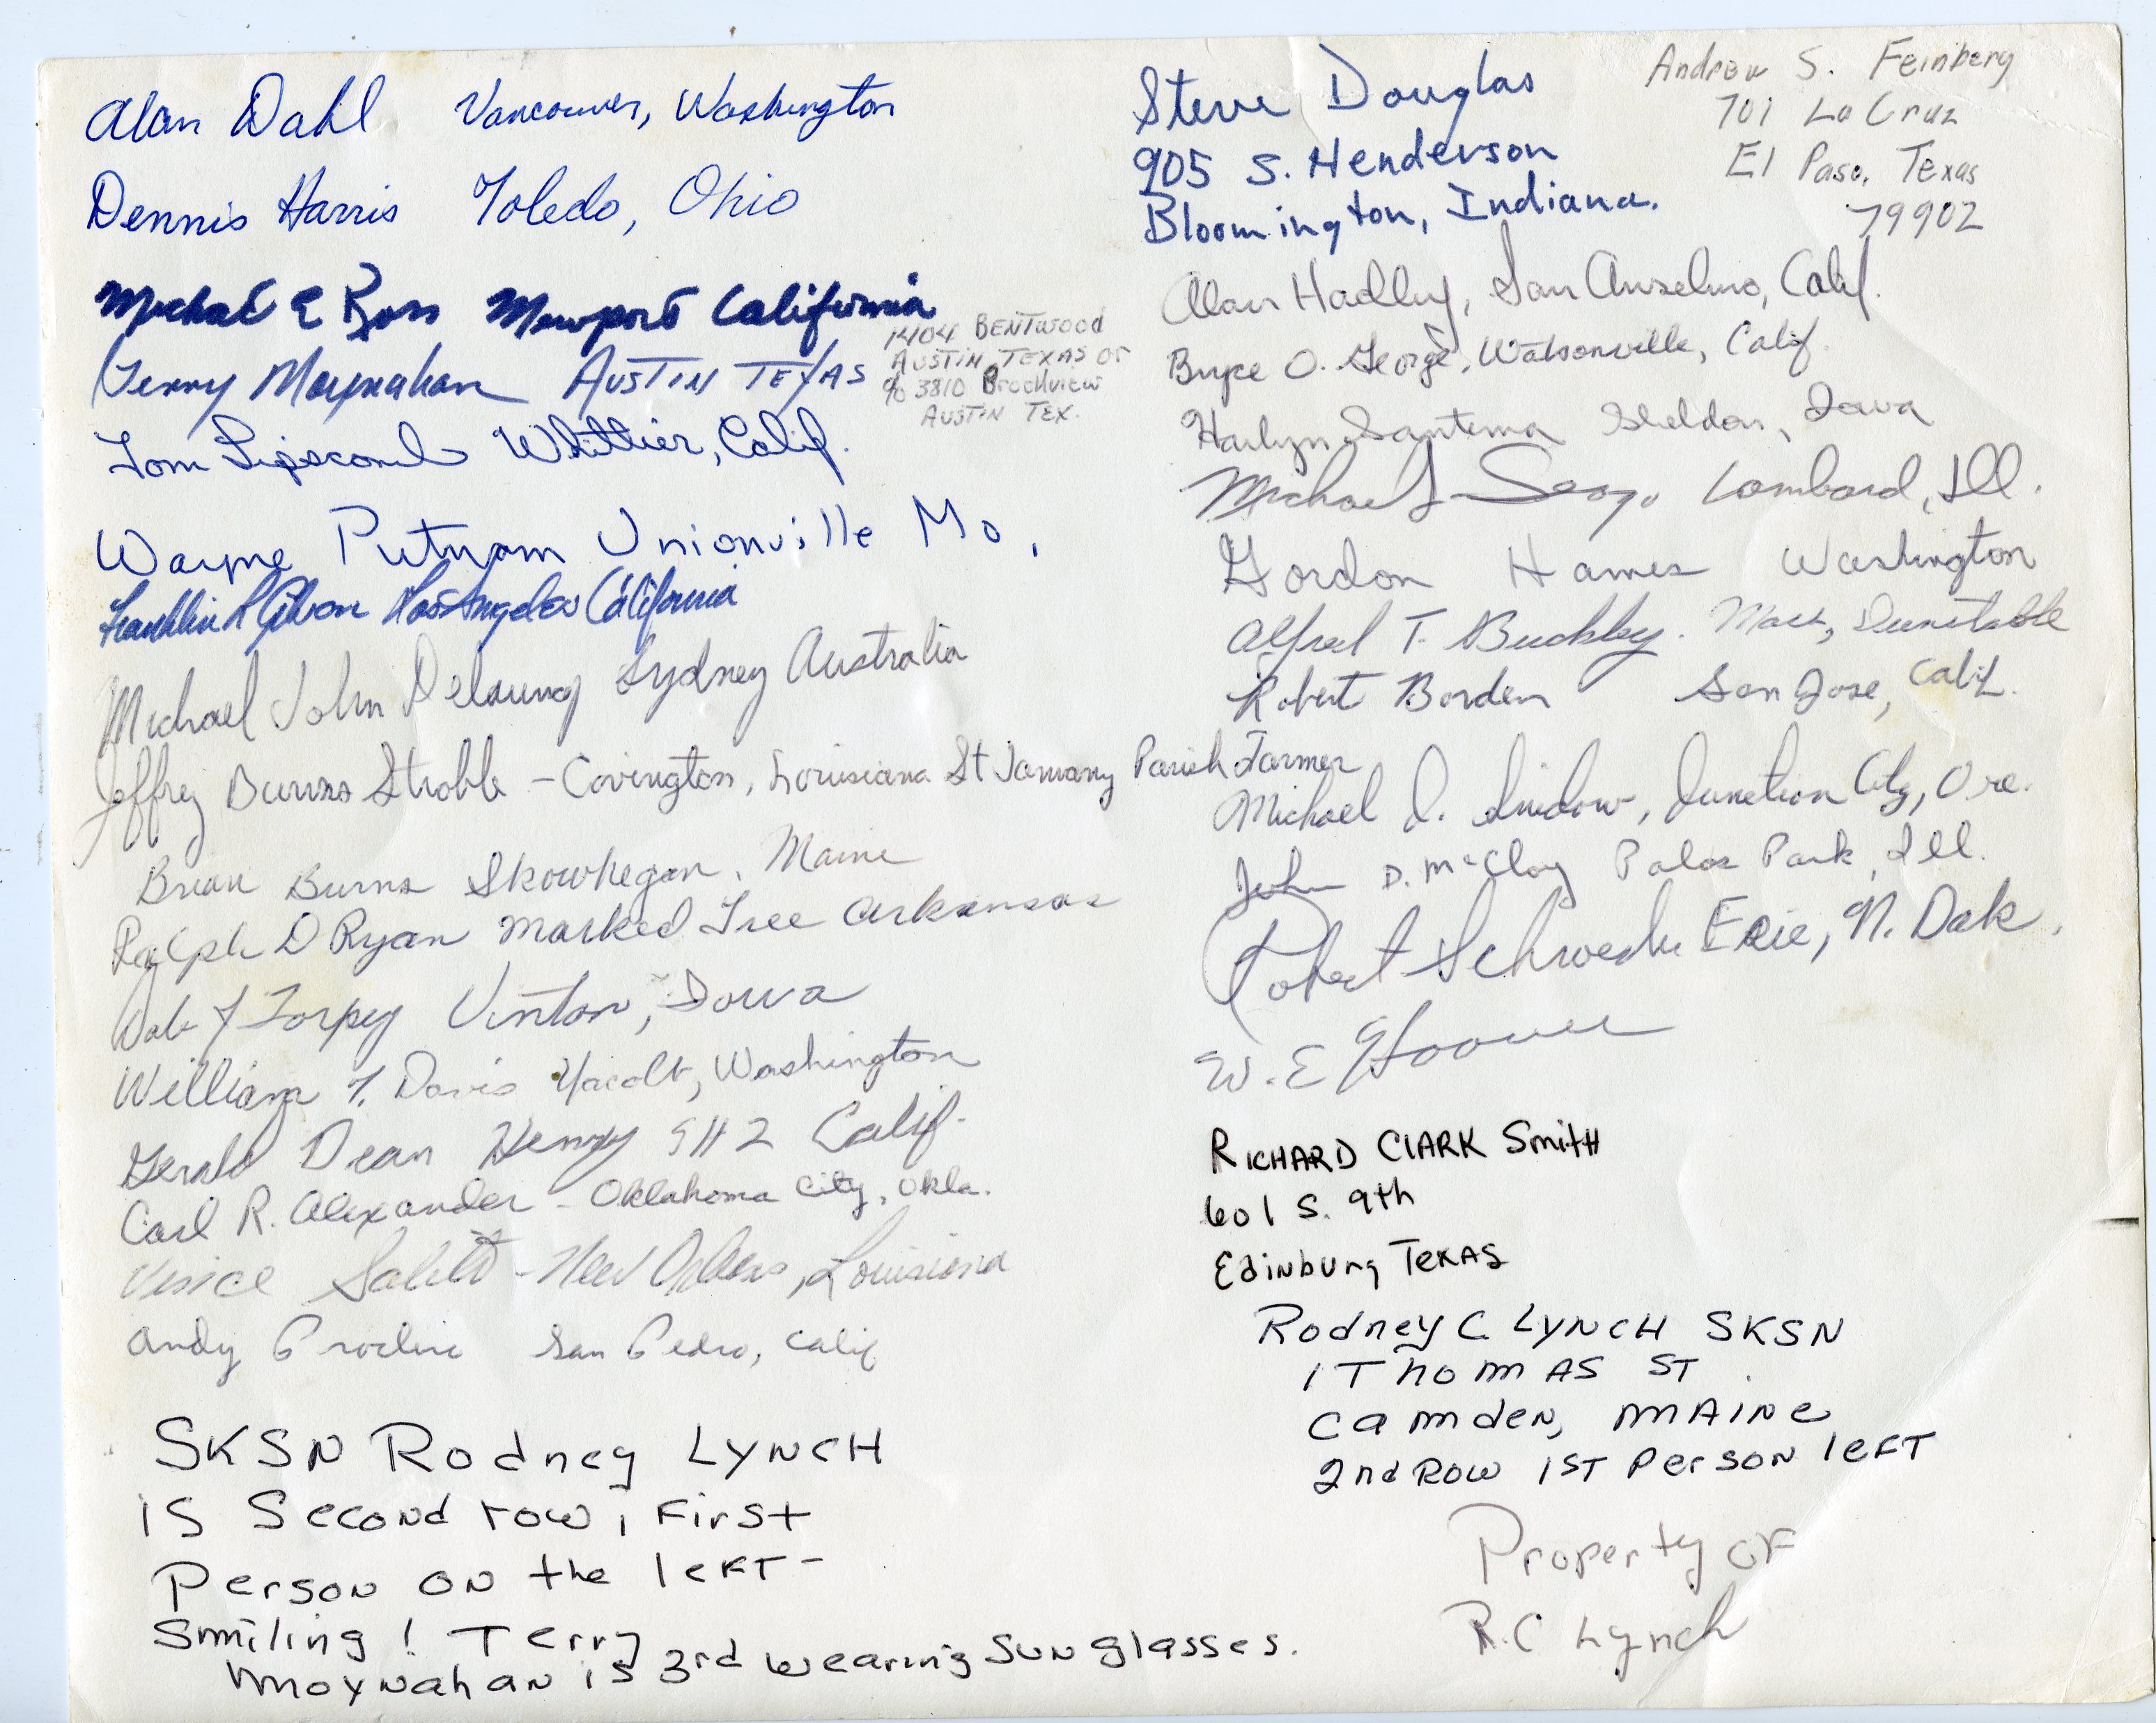 Alan Dahl Vancouver, Washington
Dennis Harris Toledo, Ohio
Michael E Ross Newport California
Terry Moynahan AUSTIN TEXAS
1404 BENTWOOD
AUSTIN, TEXAS or
% 3810 Brockview
AUSTIN TEX.
Tom Lipscomb Whittier, Calif.
Wayne Putnam Unionville Mo.
Franklin R Gibson Los Angeles California
Michael John Delauney Sydney Australia
Jeffrey Burns Strobble - Covington, Louisiana St Tammany Parish Farmer
Brian Burns Skowhegan, Maine
Ralph D Ryan Marked Tree Arkansas
Dale J Torpey Vinton, Iowa
William T. Davis Yacolt, Washington
Gerald Dean Henry SH2 Calif.
Carl R. Alexander - Oklahoma City, Okla.
Vince - New Orleans, Louisiana
Andy San Pedro, Calif
SKSN Rodney LYNCH
is Second row, First
Person on the left -
Smiling! Terry
Moynahan is 3rd wearing Sunglasses.
Steve Douglas
905 S. Henderson
Bloomington, Indiana.
Andrew S. Feinberg
701 La Cruz
El Paso, Texas
79902
Alan Hadley, San Anselmo, Calif.
Bryce O. George, Watsonville, Calif.
Harlyn Santema Sheldon, Iowa
Michael J Seago Lombard, Ill.
Gordon Hames Washington
Alfred T. Buckley. Mass, Dunstable
Robert Borden San Jose, Calif.
Michael D. Lindow, Junction City, Ore.
John D. McCloy Palos Park, Ill.
Robert Erie, N. Dak.
W. E Hoover
RICHARD CLARK Smith
601 S. 9th
Edinburg TEXAS
Rodney C LYNCH SKSN
1 Thomas ST
Camden, MAINE
2nd Row 1ST Person left
Property of
R.C Lynch